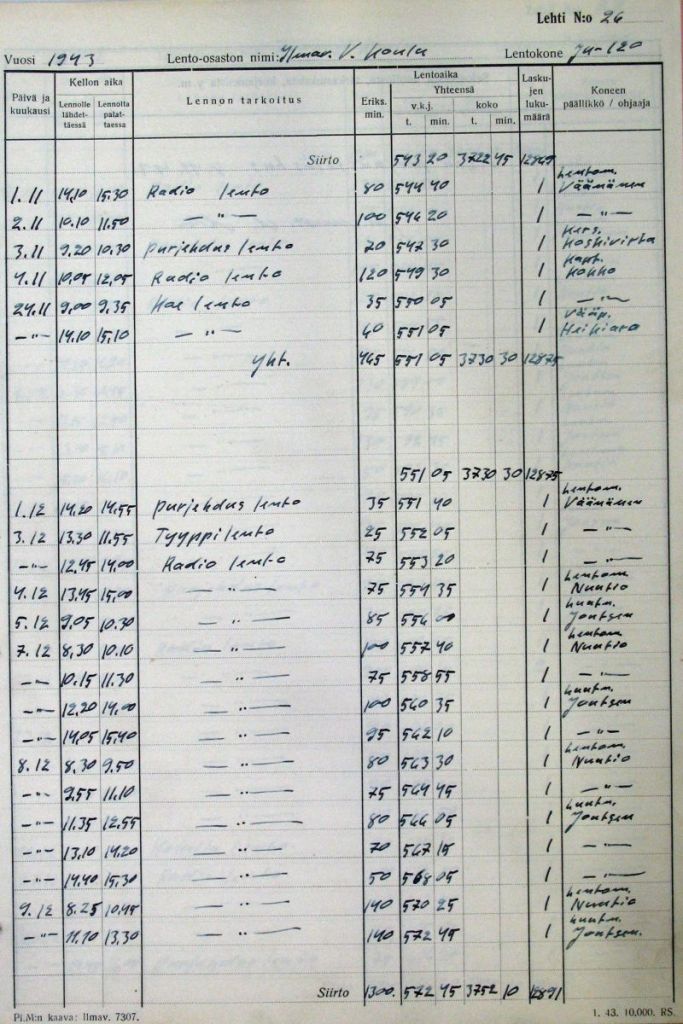 Lehti N:o 26
Vuosi 1943 Lento-osaston nimi: Ilmav. V. Koulu Lentokone Ju-120
Päivä ja kuukausi Kellon aika Lennolle lähdettäessä Lennolta palattaessa Lennon tarkoitus Lentoaika Eriks. min. Yhteensä v.k.j. t. min. koko t. min. Laskujen lukumäärä Koneen päällikkö / ohjaaja
Siirto 543 20 3722 45 12869
1.11 14.10 15.30 Radio lento 80 544 40 1 Lentom. Väänänen
2.11 10.10 11.50 — " — 100 546 20 1 — " —
3.11 9.20 10.30 purjehdus lento 70 547 30 1 Kers. Koskivirta
4.11 10.05 12.05 Radio lento 120 549 30 1 Kapt. Kokko
24.11 9.00 9.35 Koe lento 35 550 05 1 — " —
— " — 14.10 15.10 — " — 60 551 05 1 Vääp. Heikiaro
Yht. 465 551 05 3730 30 12875
551 05 3730 30 12875
1.12 14.20 14.55 purjehdus lento 35 551 40 1 Lentom. Väänänen
3.12 13.30 11.55 Tyyppilento 25 552 05 1 — " —
— " — 12.45 14.00 Radio lento 75 553 20 1 — " —
4.12 13.45 15.00 — " — 75 554 35 1 Lentom. Nuutio
5.12 9.05 10.30 — " — 85 556 00 1 Luutn. Joutsen
7.12 8.30 10.10 — " — 100 557 40 1 Lentom. Nuutio
— " — 10.15 11.30 — " — 75 558 55 1 — " —
— " — 12.20 14.00 — " — 100 560 35 1 Luutn. Joutsen
— " — 14.05 15.40 — " — 95 562 10 1 — " —
8.12 8.30 9.50 — " — 80 563 30 1 Lentom. Nuutio
— " — 9.55 11.10 — " — 75 564 45 1 — " —
— " — 11.35 12.55 — " — 80 566 05 1 Luutn. Joutsen
— " — 13.10 14.20 — " — 70 567 15 1 — " —
— " — 14.40 15.30 — " — 50 568 05 1 — " —
9.12 8.25 10.45 — " — 140 570 25 1 Lentom. Nuutio
— " — 11.10 13.30 — " — 140 572 45 1 Luutn. Joutsen.
Siirto 1300. 572 45 3752 10 12891
Pi.M:n kaava: Ilmav. 7307. 1. 43. 10.000. RS.